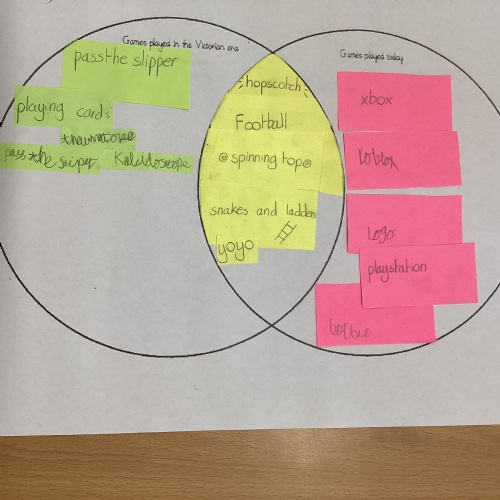 Games played in the Victorian era
pass the slipper
playing cards
thaumatrope
pass the sliper
Kaleidoscope
hopscotch
Football
spinning top
snakes and ladders
yoyo
Games played today
xbox
roblox
Logo
playstation
barbie